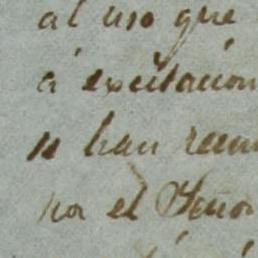 al uso que
á excitacion
se han reun
por el Señor